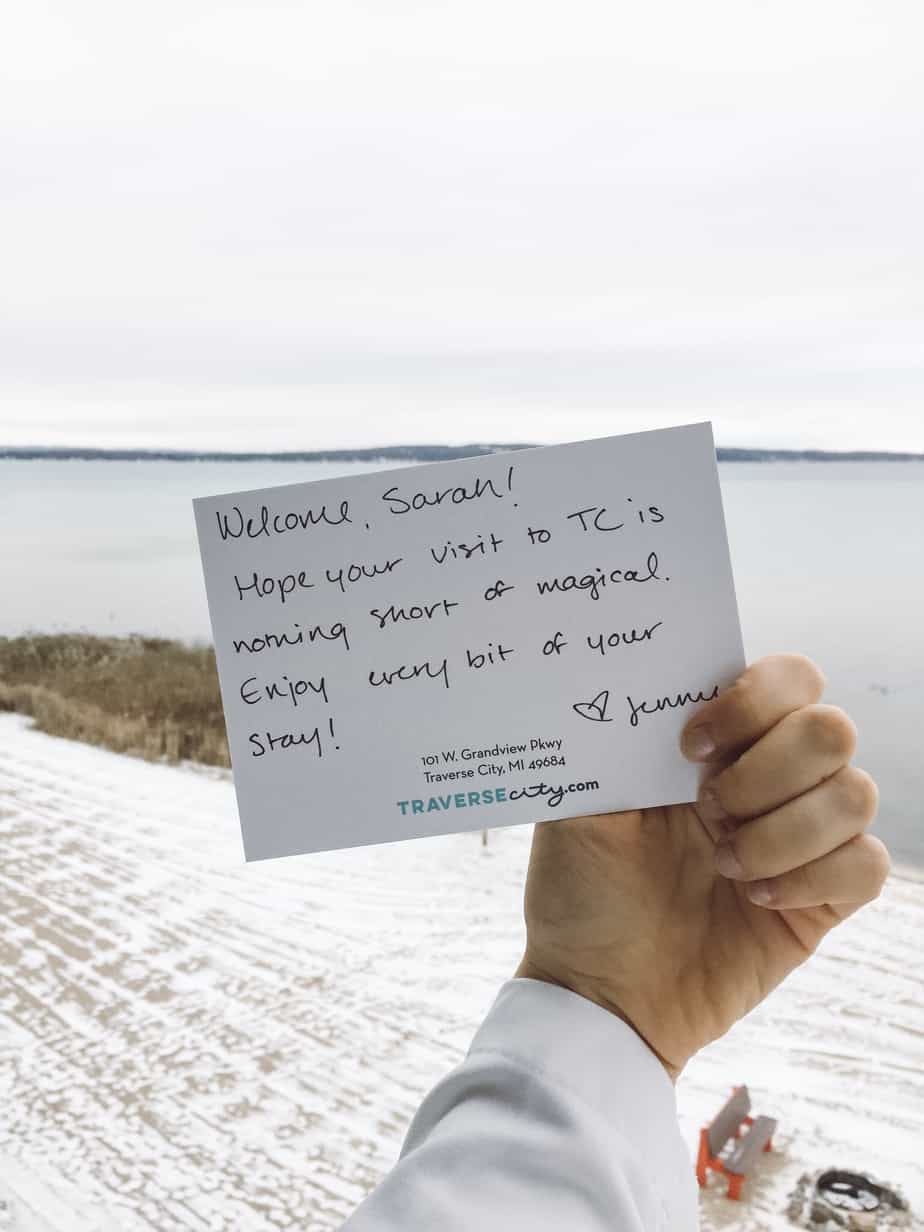 Welcome, Sarah!
Hope your visit to TC is
nothing short of magical.
Enjoy every bit of your
stay!
♡ Jenny
101 W. Grandview Pkwy
Traverse City, MI 49684
TRAVERSEcity.com